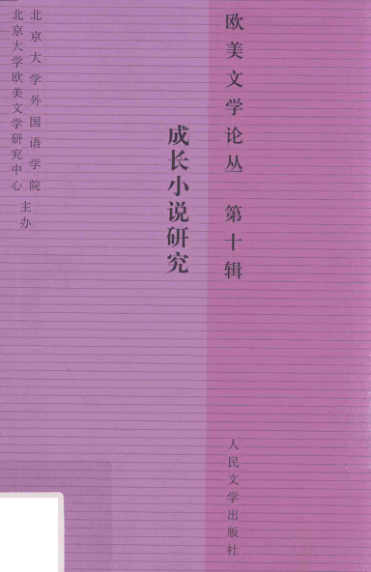 欧美文学论丛 第十辑
人民文学出版社
成长小说研究
北京大学外国语学院
北京大学欧美文学研究中心
主办